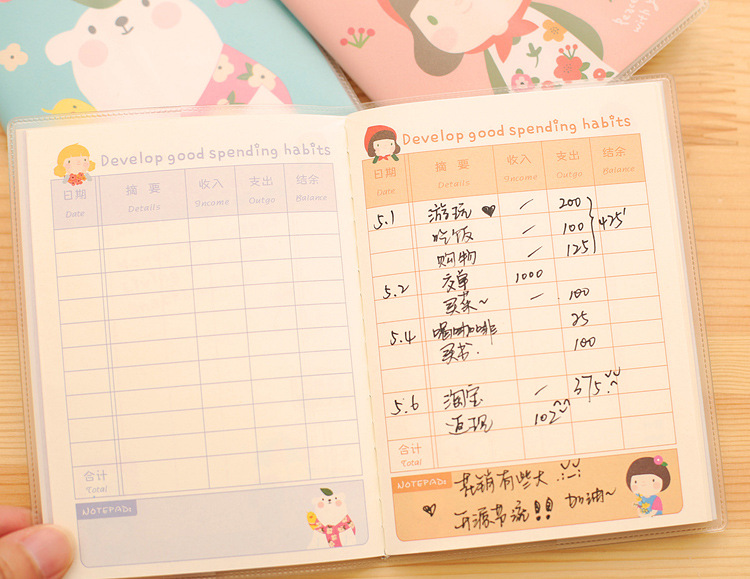 Develop good spending habits
日期 摘要 收入 支出 结余
Date Details Income Outgo Balance
合计
Total
NOTEPAD:
Develop good spending habits
日期 摘要 收入 支出 结余
Date Details Income Outgo Balance
5.1 游玩 ♥ — 200
吃饭 — 100 } 425
购物 — 125
5.2 发单 1000
买菜~ — 100
5.4 喝咖啡 25
买书. 100
5.6 淘宝 — 375
返现 102
合计
Total
NOTEPAD:
花销有些大
♥ 开源节流!! 加油~